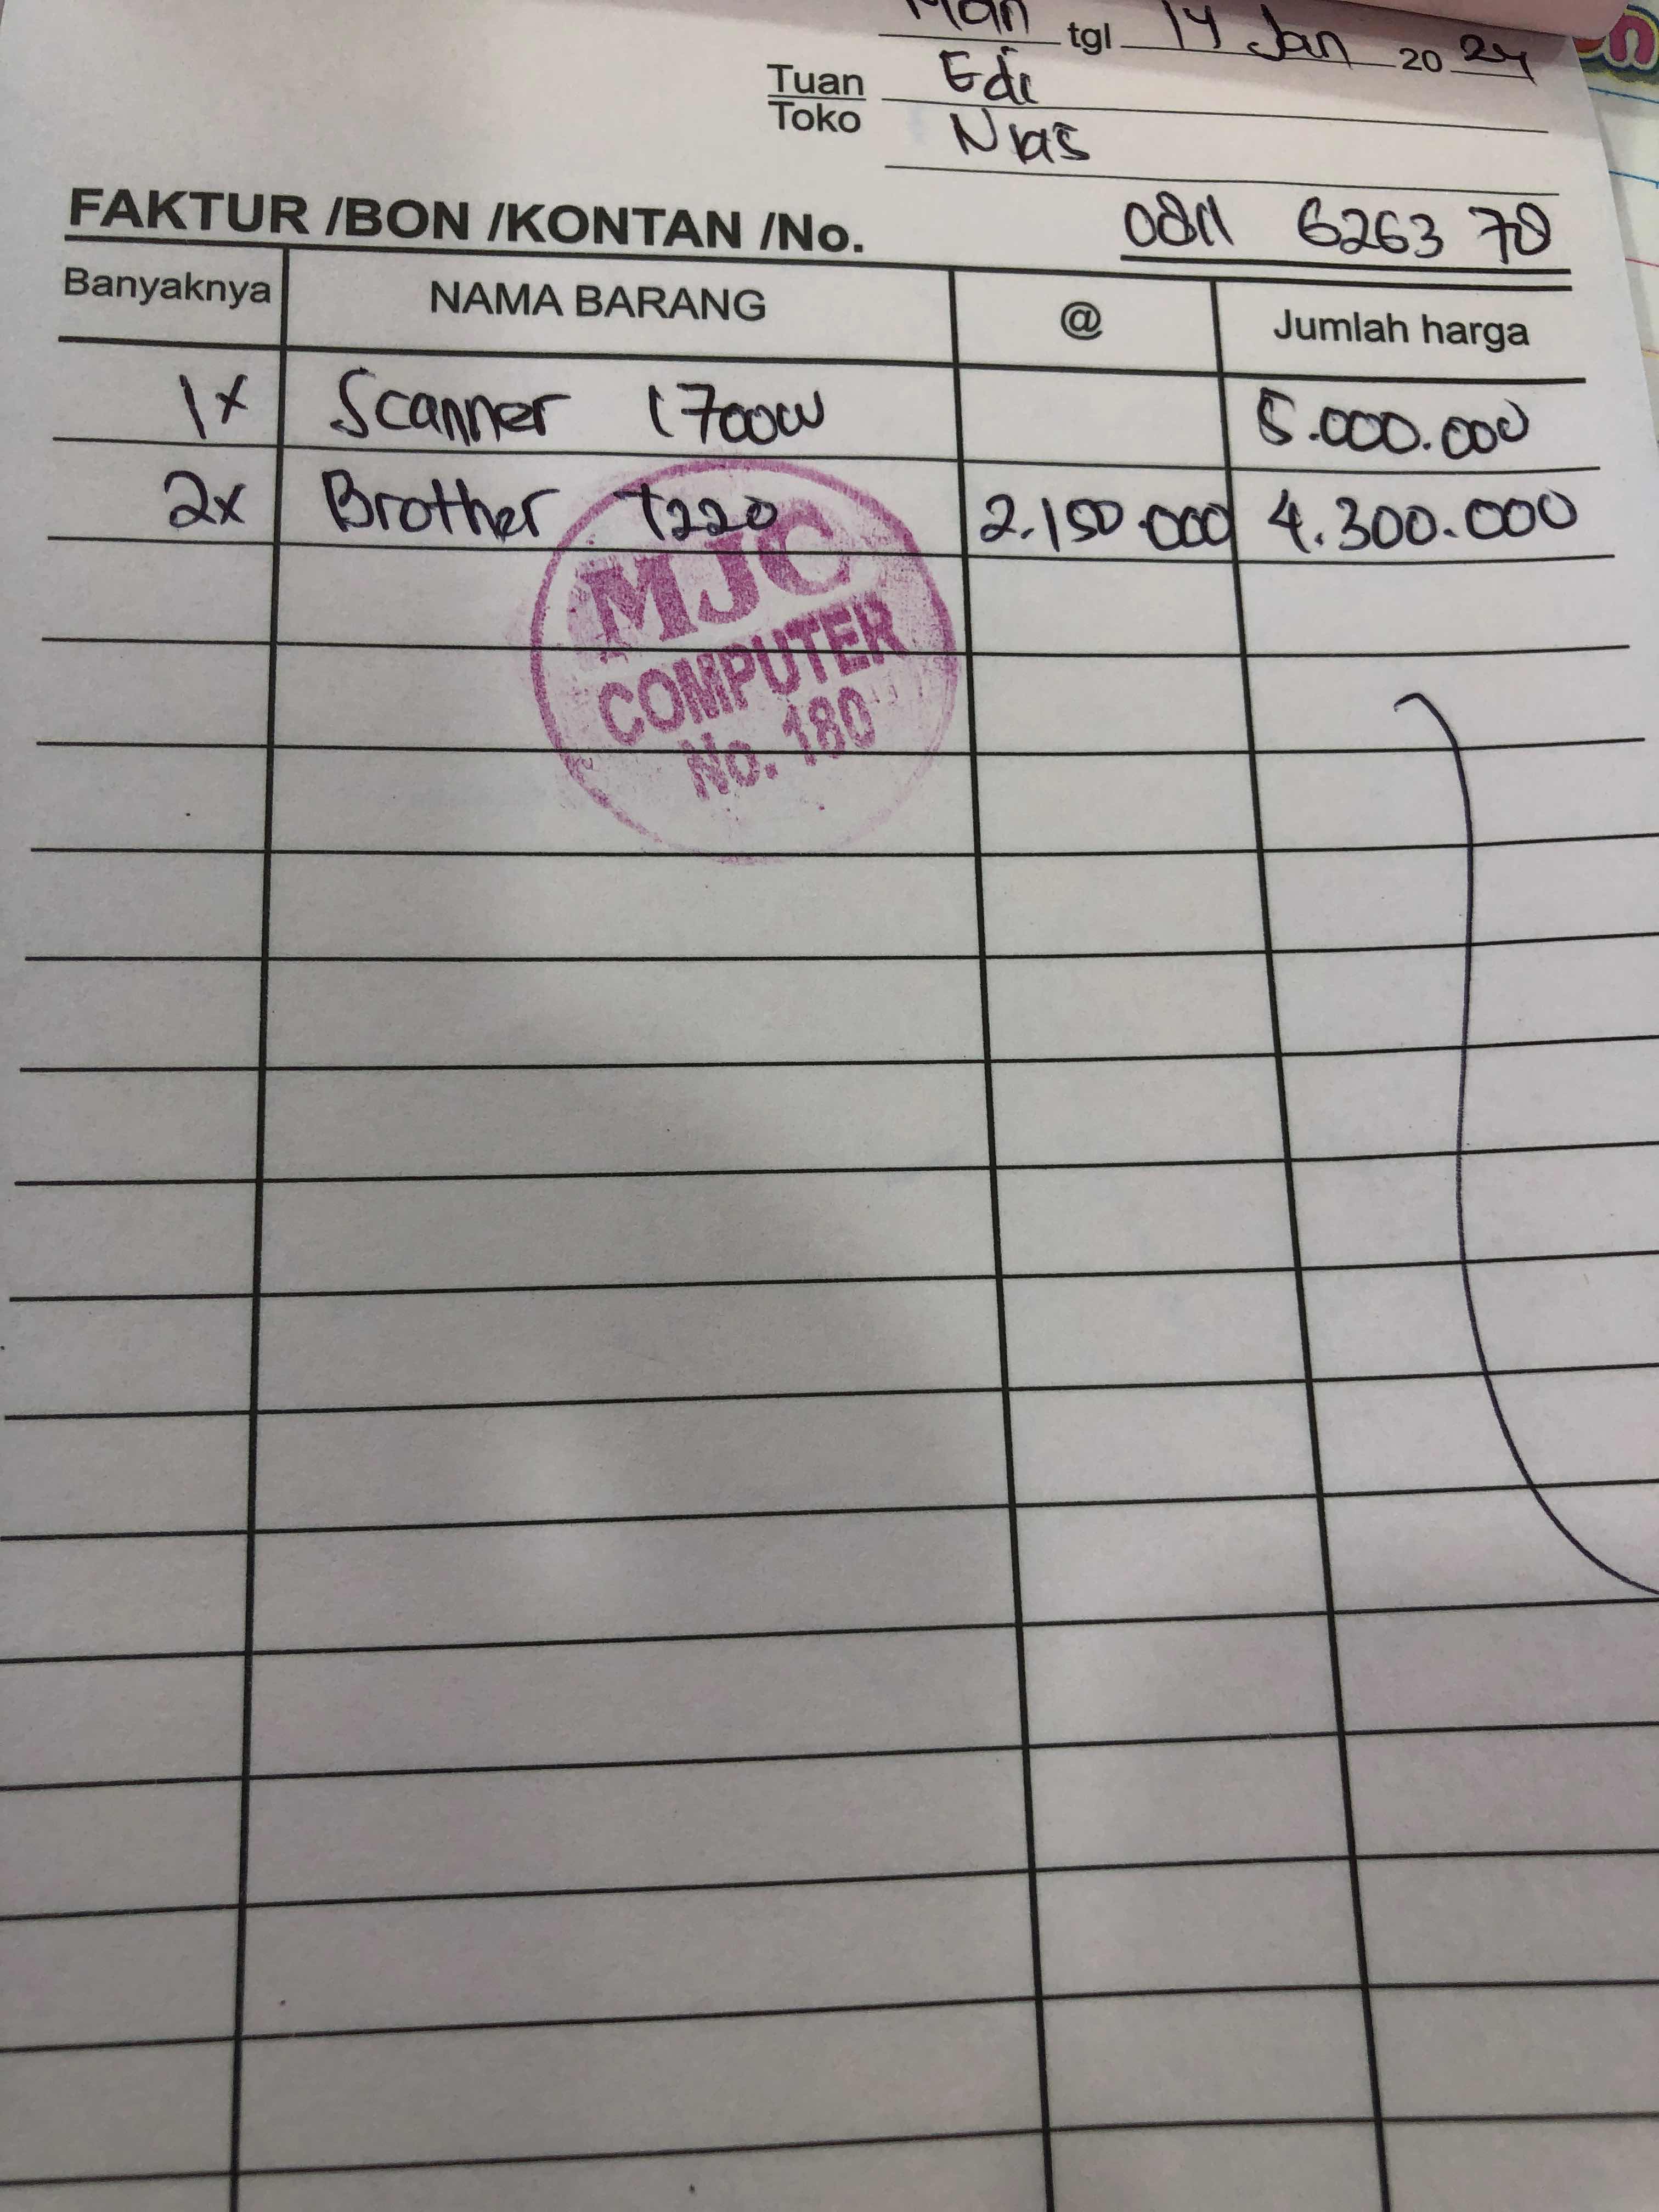 tgl 14 Jan 2024
Tuan Edi
Toko Nias
FAKTUR /BON /KONTAN /No. 0811 6263 78
Banyaknya NAMA BARANG @ Jumlah harga
1x Scanner 1700W 5.000.000
2x Brother T220 2.150.000 4.300.000
MJC
COMPUTER
No. 180